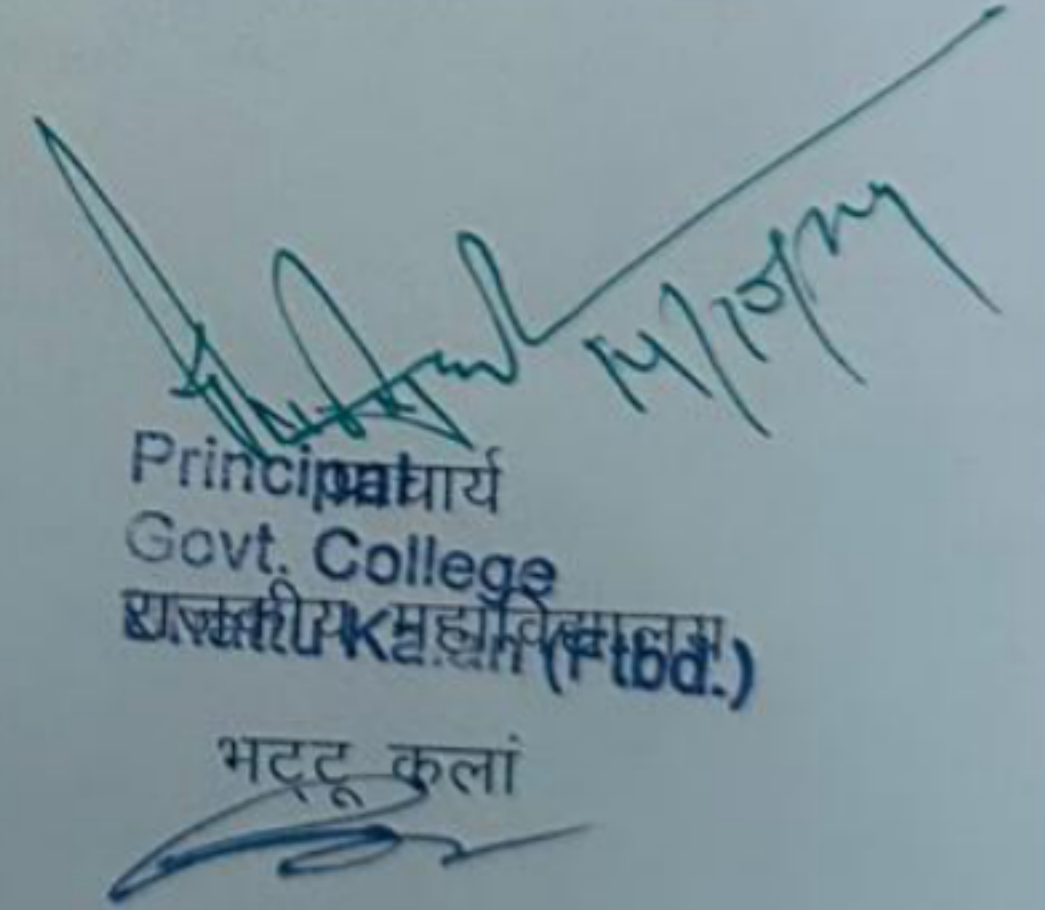 14/10/24
Principal
प्राचार्य
Govt. College
राजकीय महाविद्यालय
Bhattu Kalan (Ftbd.)
भट्टू कलां